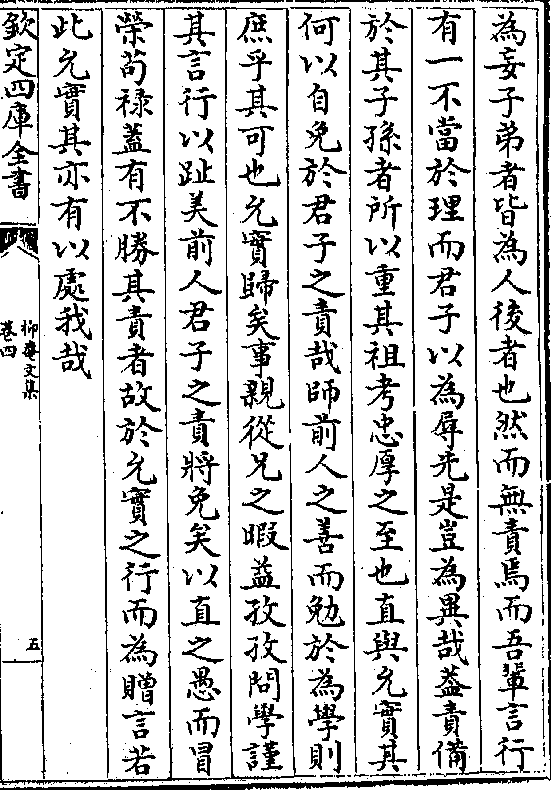 為妄子弟者皆為人後者也然而無責焉而吾輩言行
有一不當於理而君子以為辱先是豈為異哉蓋責備
於其子孫者所以重其祖考忠厚之至也直與允實其
何以自免於君子之責哉師前人之善而勉於為學則
庶乎其可也允實歸矣事親從兄之暇益孜孜問學謹
其言行以趾美前人君子之責將免矣以直之愚而冒
榮茍祿蓋有不勝其責者故於允實之行而為贈言若
此允實其亦有以處我哉
欽定四庫全書
抑菴文集
卷四
五